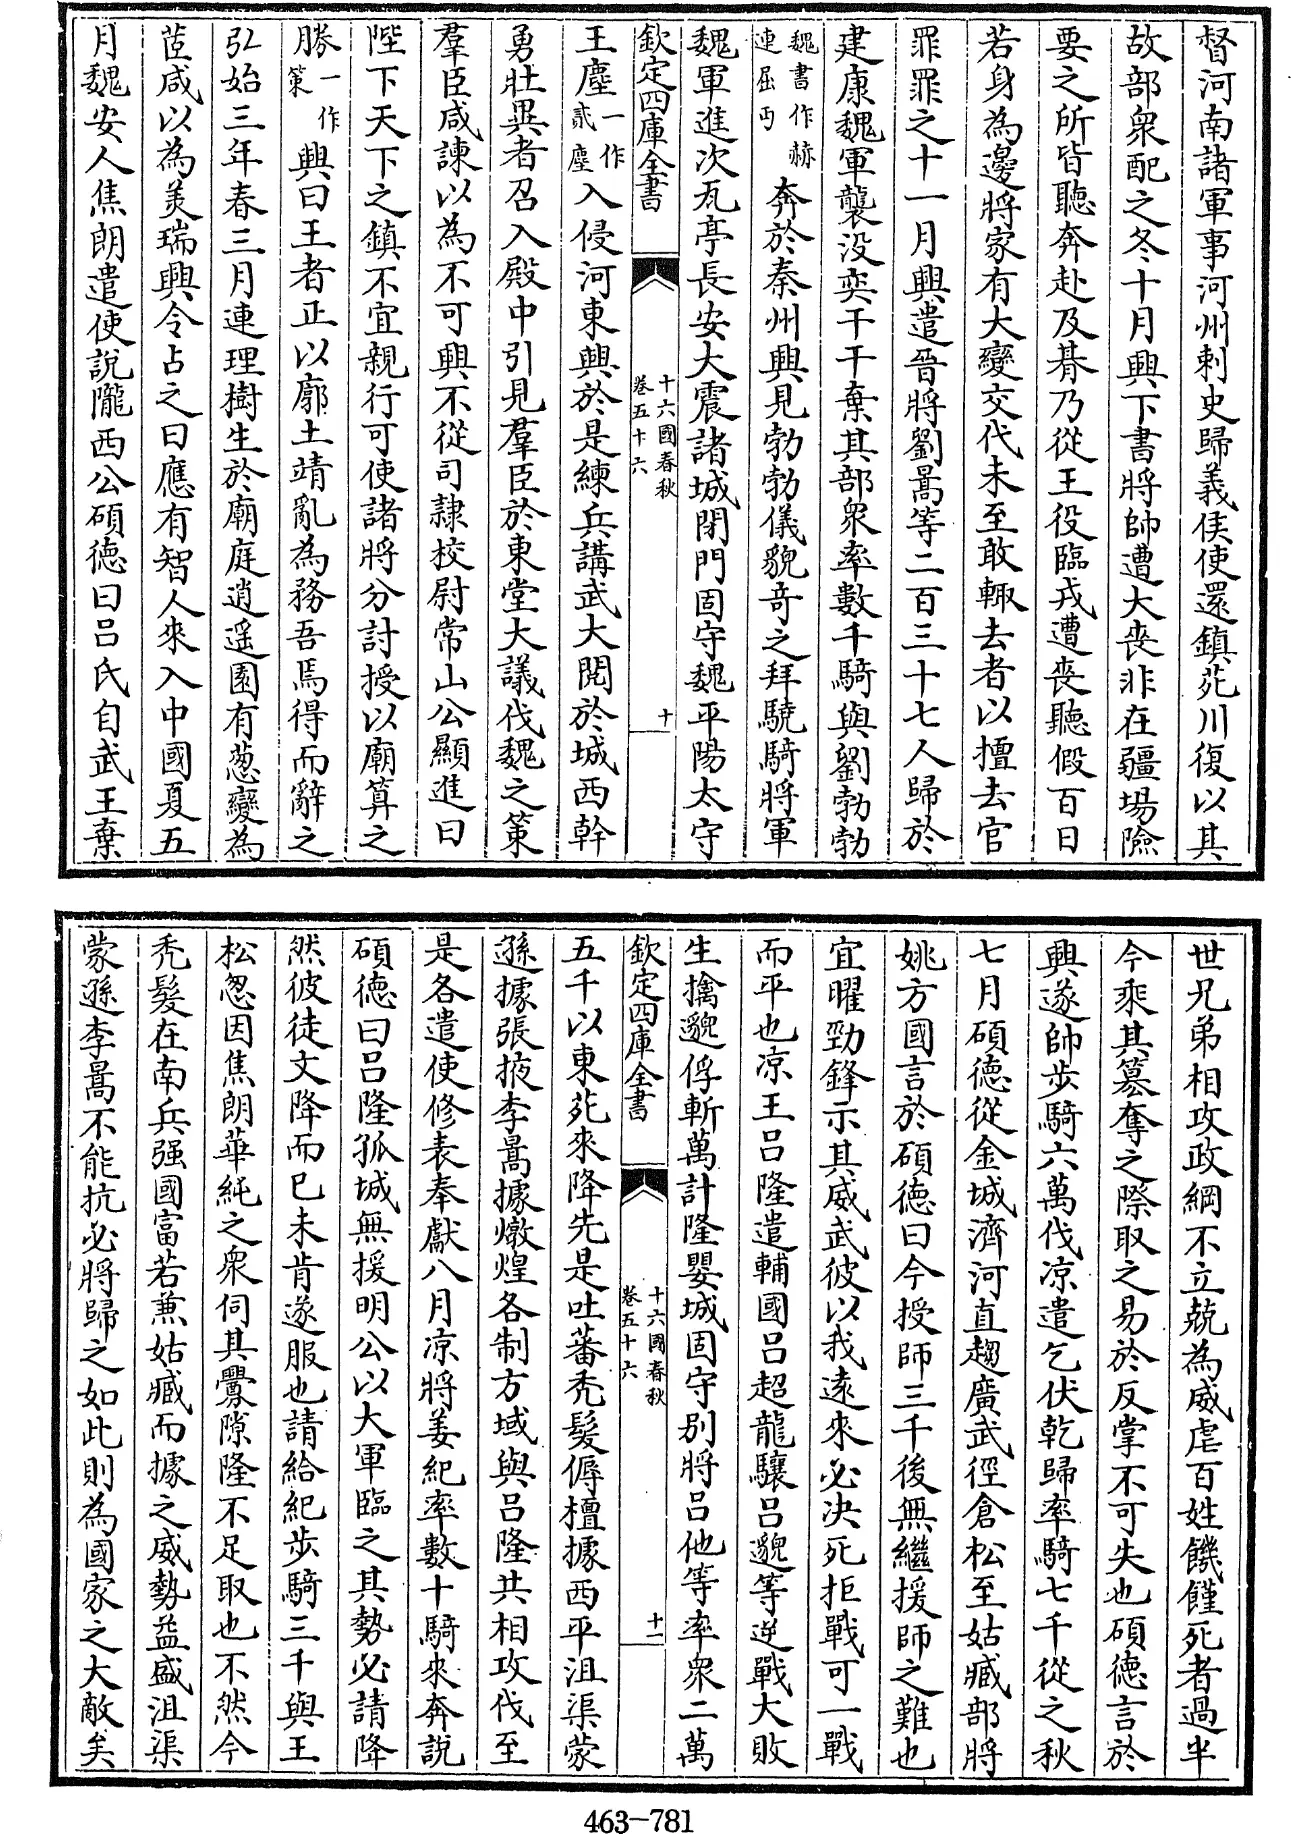 督河南諸軍事河州剌史歸義侯使還鎮苑川復以其
故部衆配之冬十月興下書將帥遭大喪非在疆埸險
要之所皆聽奔赴及朞乃從王役臨戎遭喪聽假百日
若身為邊將家有大變交代未至敢輒去者以擅去官
罪罪之十一月興遣晉將劉嵩等二百三十七人歸於
建康魏軍襲没奕干干棄其部衆率數千騎與劉勃勃
魏書作赫連屈丐奔於秦州興見勃勃儀貌奇之拜驍騎將軍
魏軍進次瓦亭長安大震諸城閉門固守魏平陽太守
欽定四庫全書
十六國春秋
卷五十六
十
王塵一作貳塵入侵河東興於是練兵講武大閱於城西幹
勇壯異者召入殿中引見羣臣於東堂大議伐魏之策
羣臣咸諫以為不可興不從司隷校尉常山公顯進曰
陛下天下之鎮不宜親行可使諸將分討授以廟算之
勝一作策興曰王者正以廓土靖亂為務吾焉得而辭之
弘始三年春三月連理樹生於廟庭逍遥園有葱變為
茝咸以為美瑞興令占之曰應有智人來入中國夏五
月魏安人焦朗遣使說隴西公碩德曰吕氏自武王棄
世兄弟相攻政綱不立兢為威虐百姓饑饉死者過半
今乘其簒奪之際取之易於反掌不可失也碩德言於
興遂帥步騎六萬伐凉遣乞伏乾歸率騎七千從之秋
七月碩德從金城濟河直趨廣武徑倉松至姑臧部將
姚方國言於碩德曰今授師三千後無繼援師之難也
宜曜勁鋒示其威武彼以我遠來必决死拒戰可一戰
而平也凉王吕隆遣輔國吕超龍驤吕邈等逆戰大敗
生擒邈俘斬萬計隆嬰城固守别將吕他等率衆二萬
欽定四庫全書
十六國春秋
卷五十六
十一
五千以東苑來降先是吐蕃秃髮傉檀據西平沮渠蒙
遜據張掖李暠據燉煌各制方域與吕隆共相攻伐至
是各遣使修表奉獻八月凉將姜紀率數十騎來奔説
碩德曰吕隆孤城無援明公以大軍臨之其勢必請降
然彼徒文降而已未肯遂服也請給紀步騎三千與王
松怱因焦朗華純之衆伺其釁隙隆不足取也不然今
秃髮在南兵强國富若兼姑臧而據之威勢益盛沮渠
蒙遜李暠不能抗必將歸之如此則為國家之大敵矣
463-781